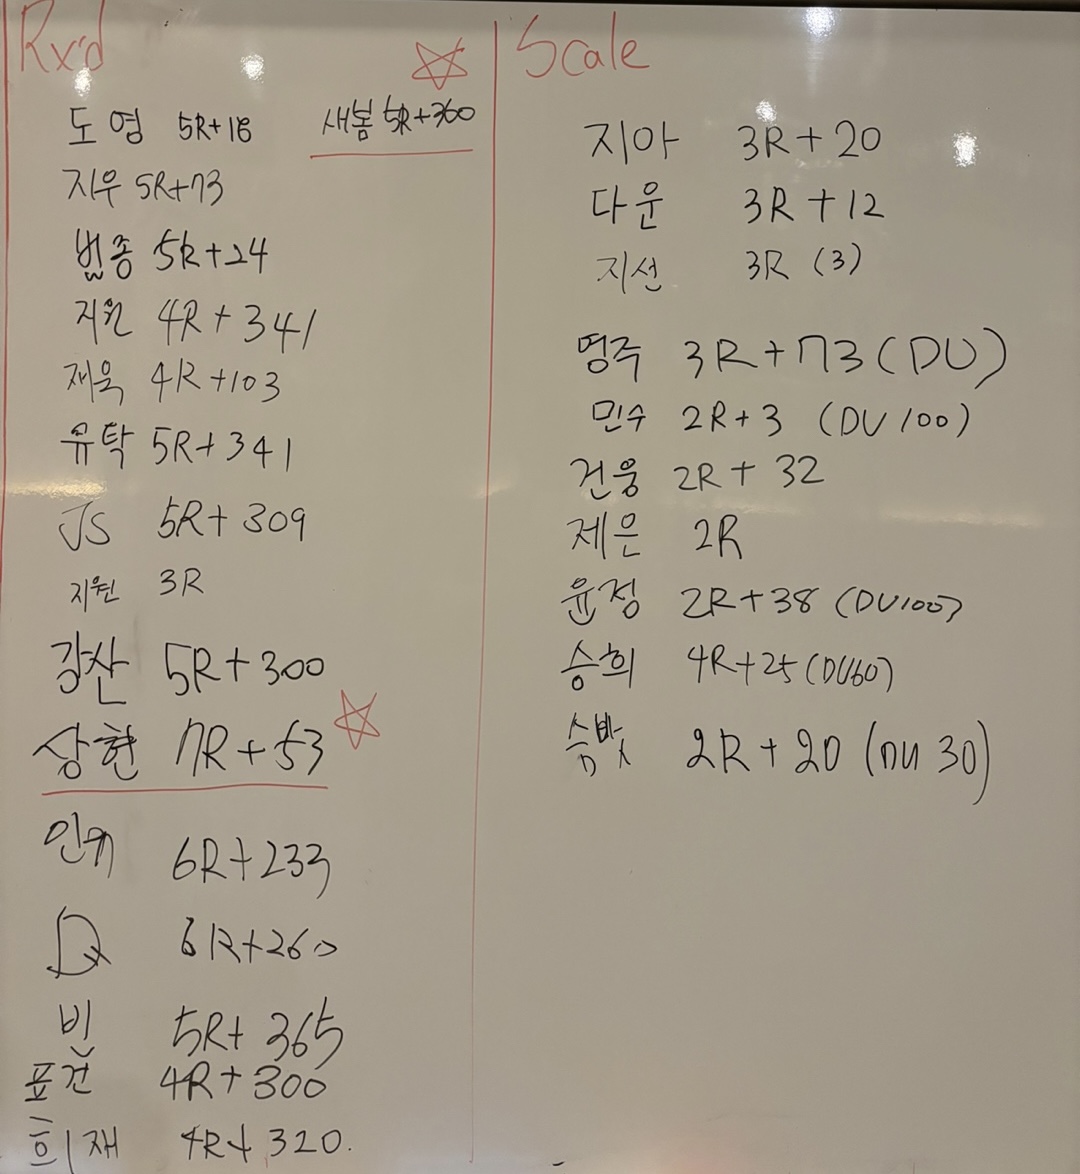 Rx'd
도영 5R+18
새봄 5R+360
지우 5R+73
범종 5R+24
지원 4R+341
재욱 4R+103
유탁 5R+341
JS 5R+309
지원 3R
강산 5R+300
상현 7R+53
인귀 6R+233
6R+260
빈 5R+365
표건 4R+300
희재 4R+320.
Scale
지아 3R+20
다운 3R+12
지선 3R (3)
영주 3R+73(DU)
민수 2R+3 (DU 100)
건웅 2R+32
제은 2R
윤정 2R+38 (DU100)
승희 4R+25(DU60)
2R+20 (DU 30)